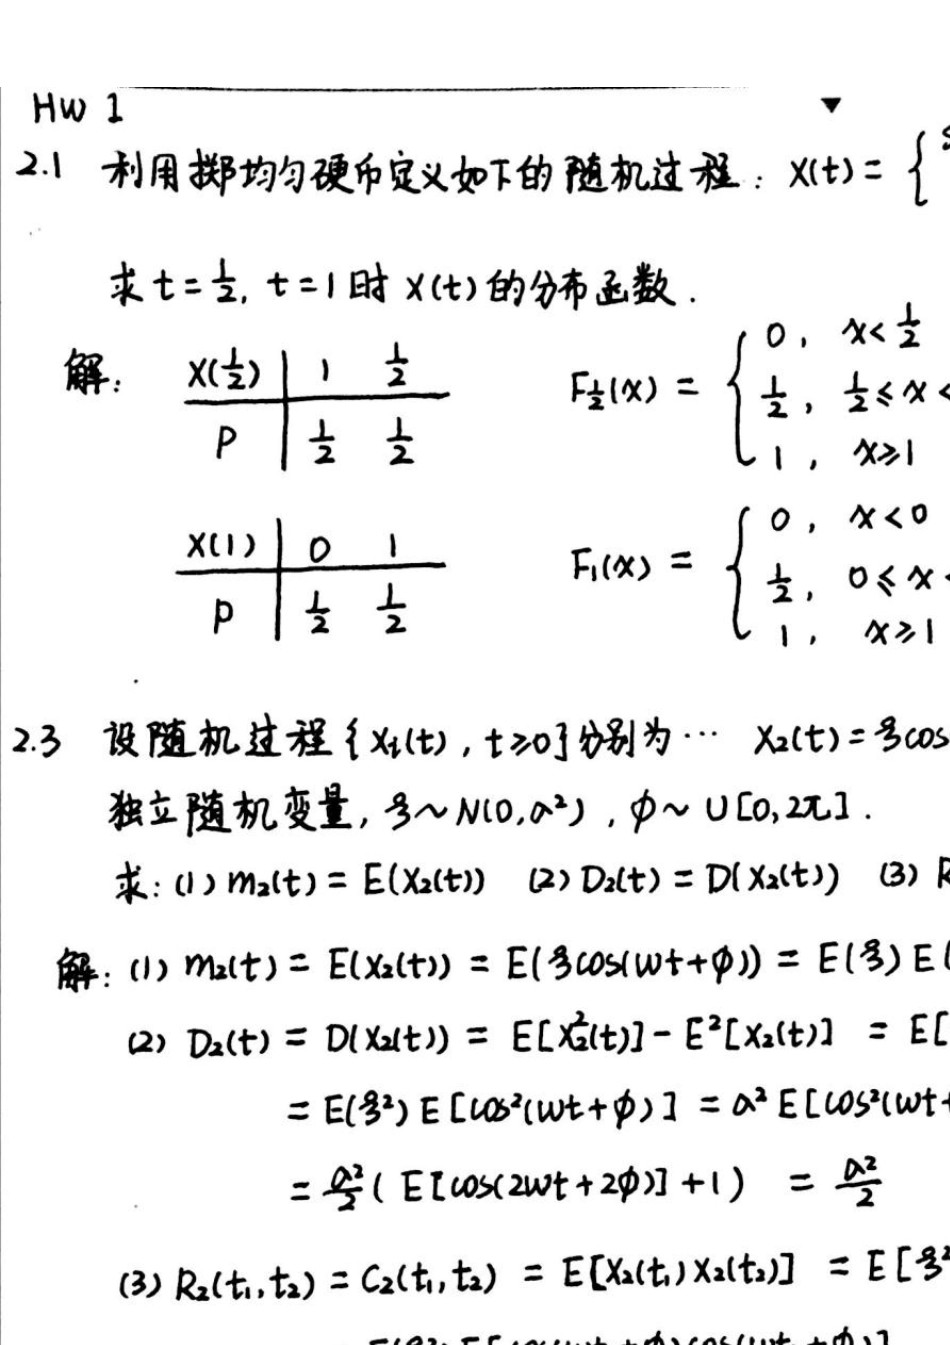 HW 1
2.1 利用掷均匀硬币定义如下的随机过程: X(t) = {
求 t = 1/2, t = 1 时 X(t) 的分布函数.
解: X(1/2) | 1 1/2
P | 1/2 1/2
F_{1/2}(x) = { 0, x < 1/2
1/2, 1/2 ≤ x <
1, x ≥ 1
X(1) | 0 1
P | 1/2 1/2
F₁(x) = { 0, x < 0
1/2, 0 ≤ x <
1, x ≥ 1
2.3 设随机过程 {X_i(t), t ≥ 0} 分别为 ⋯ X₂(t) = ξcos
独立随机变量, ξ ~ N(0, a²), φ ~ U[0, 2π].
求: (1) m₂(t) = E(X₂(t)) (2) D₂(t) = D(X₂(t)) (3) R
解: (1) m₂(t) = E(X₂(t)) = E(ξcos(wt+φ)) = E(ξ) E(
(2) D₂(t) = D(X₂(t)) = E[X₂²(t)] - E²[X₂(t)] = E[
= E(ξ²) E[cos²(wt+φ)] = a² E[cos²(wt+
= a²/2 ( E[cos(2wt+2φ)] + 1 ) = a²/2
(3) R₂(t₁,t₂) = C₂(t₁,t₂) = E[X₂(t₁)X₂(t₂)] = E[ξ²